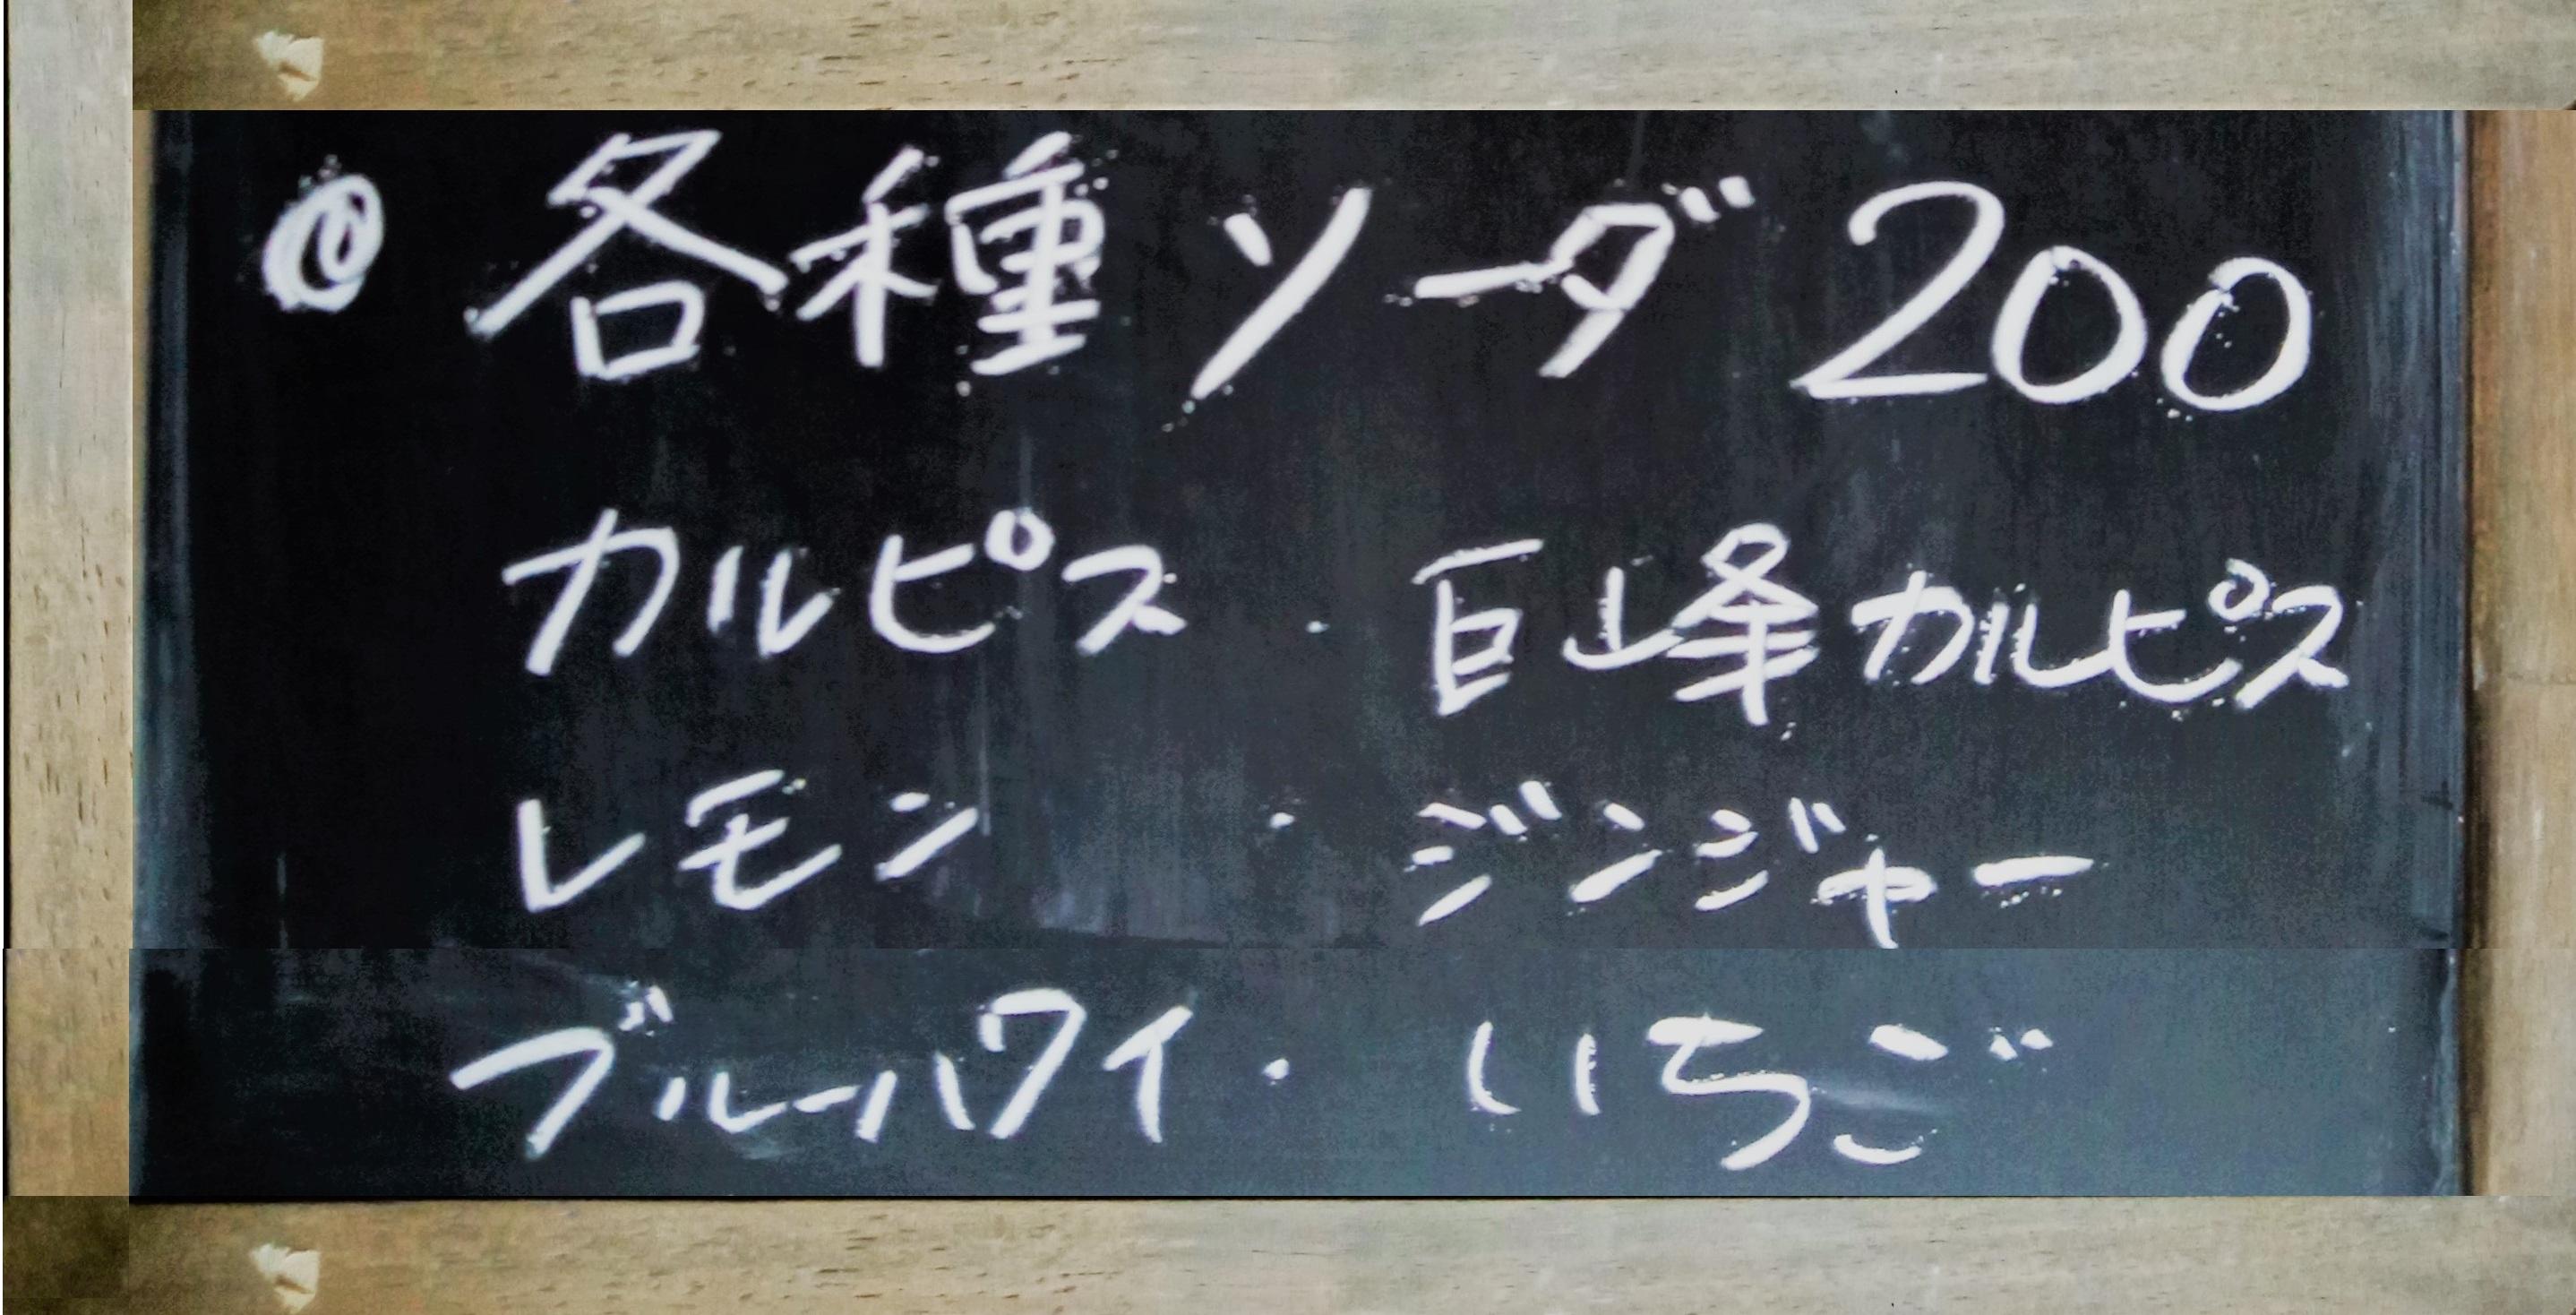 ◎ 各種ソーダ 200
カルピス ・ 巨峰カルピス
レモン ・ ジンジャー
ブルーハワイ ・ いちご